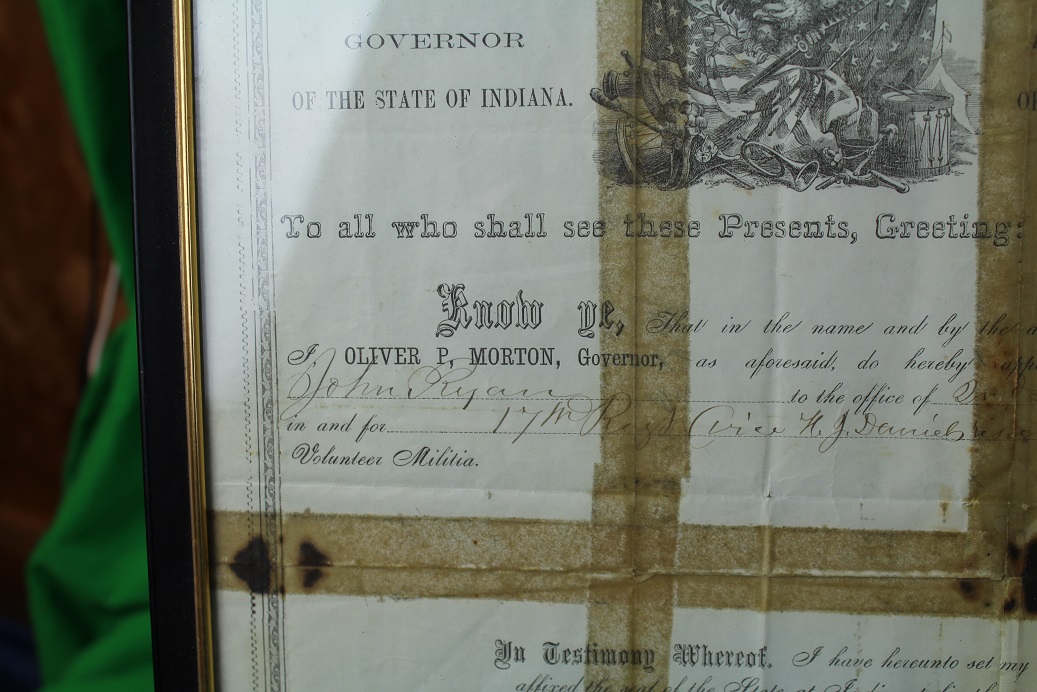 GOVERNOR
OF THE STATE OF INDIANA.
To all who shall see these Presents, Greeting:
Know ye, That in the name and by the
I, OLIVER P. MORTON, Governor, as aforesaid, do hereby
John Ryan to the office of
in and for 17th Regt (vice H. J. Daniels
Volunteer Militia.
In Testimony Whereof, I have hereunto set my
affixed the seal of the State of